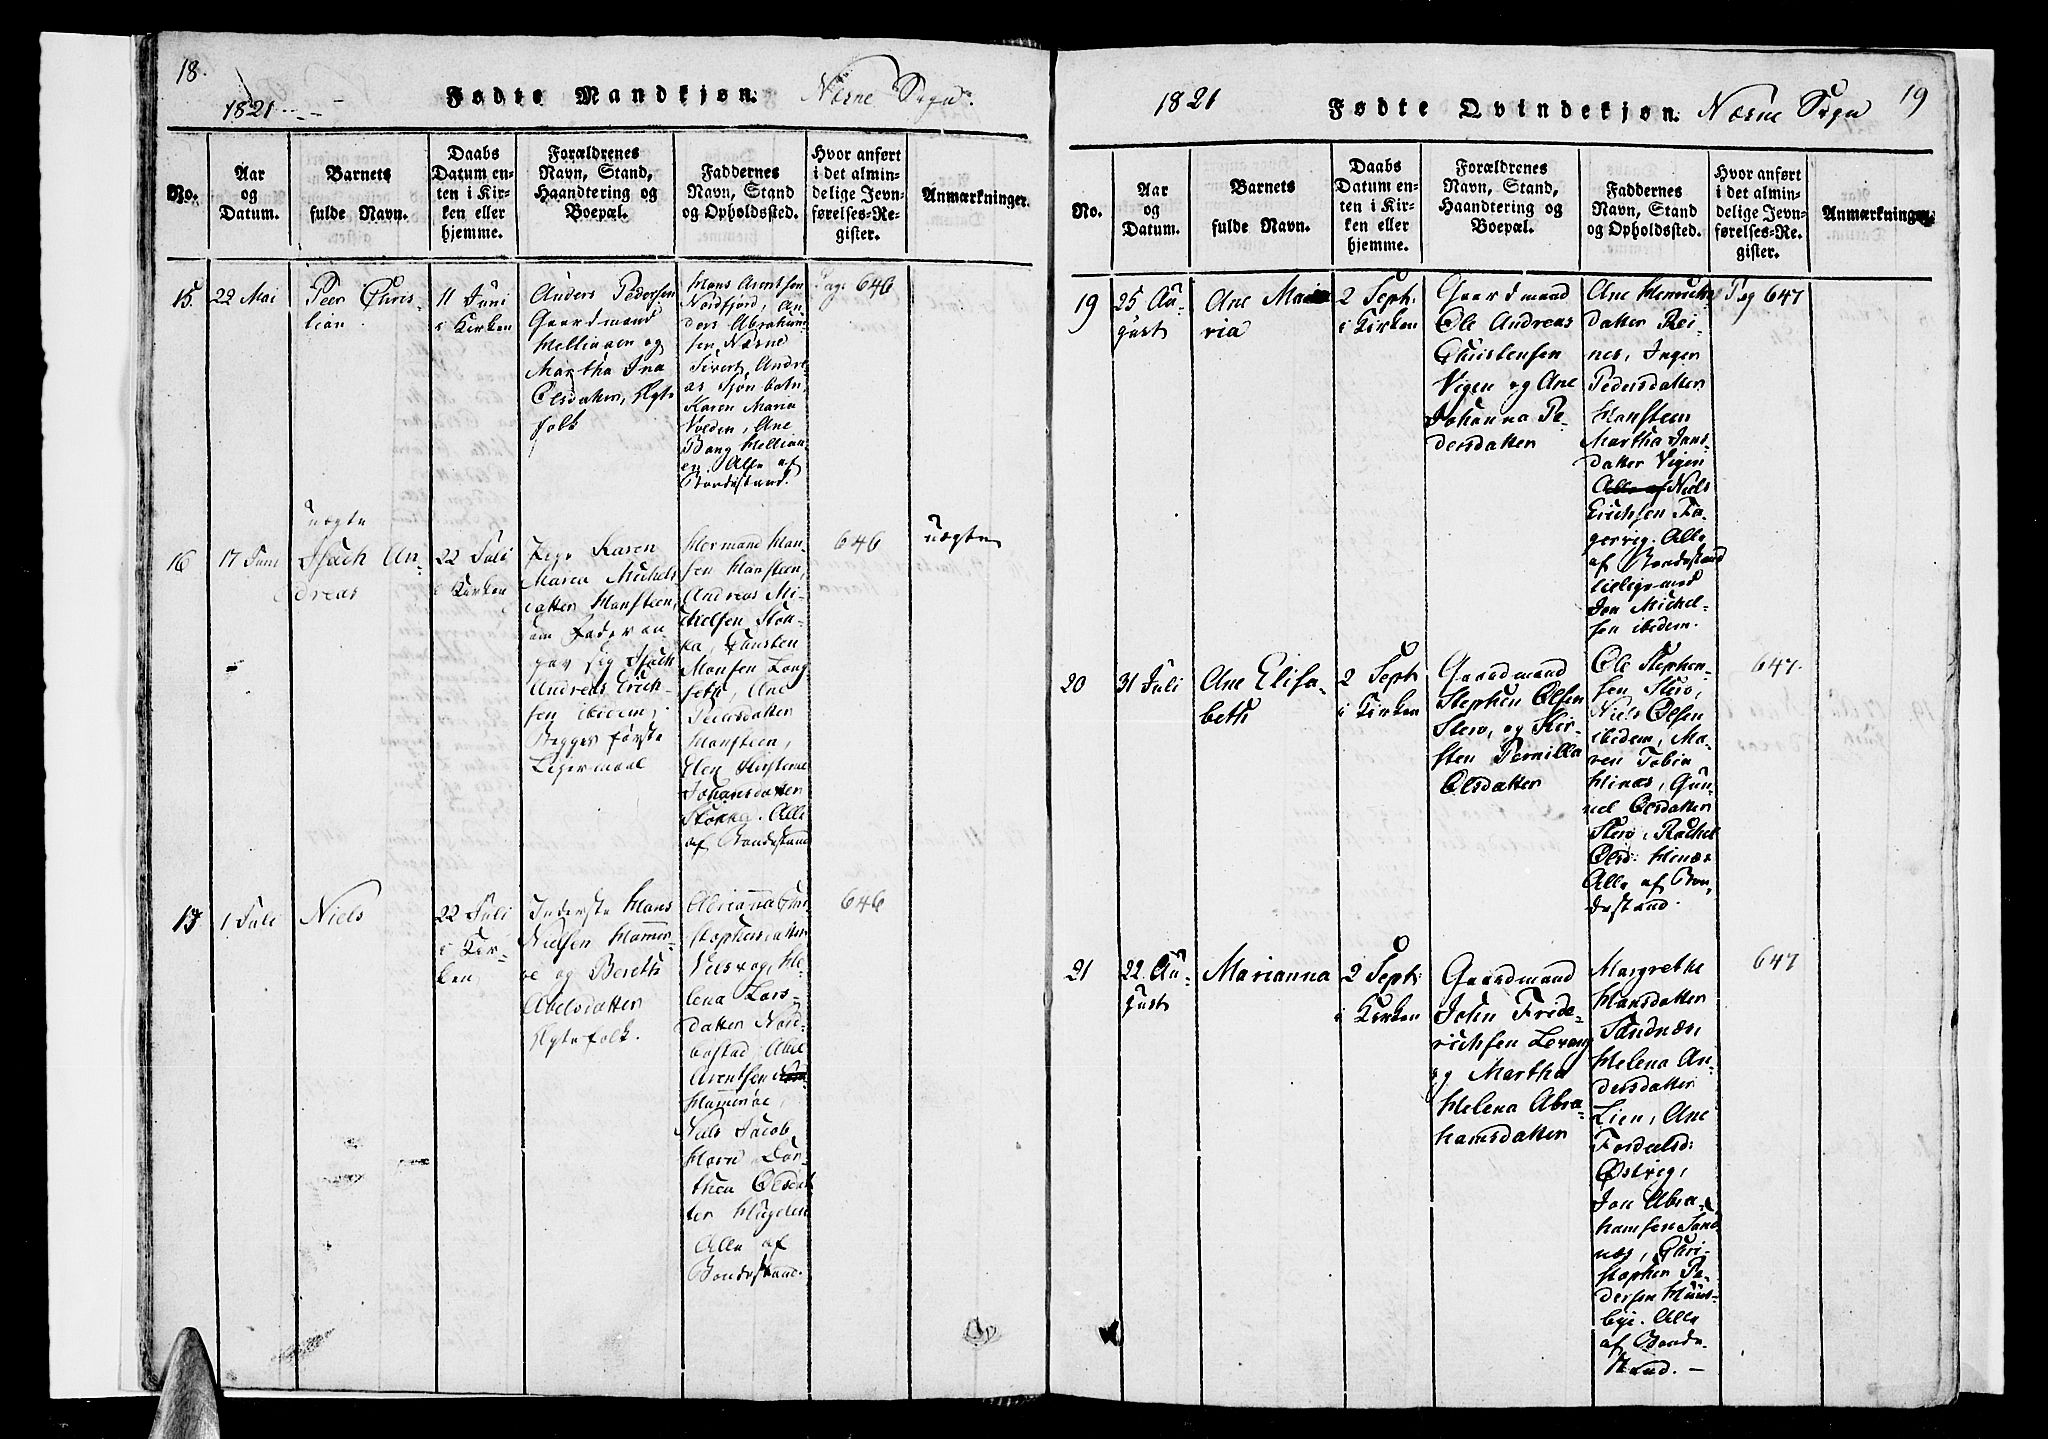 18.
1821
Fødte Mandkjøn. Næsne Sogn.
No.
Aar
og
Datum.
Barnets
fulde Navn.
Daabs
Datum en-
ten i Kir-
ken eller
hjemme.
Forældrenes
Navn, Stand,
Haandtering og
Boepæl.
Faddernes
Navn, Stand
og Opholdssted.
Hvor anført
i det almin-
delige Jevn-
førelses-Re-
gister.
Anmærkninger.
15.
22 Mai
Peer Chris-
tian
11 Juni
i Kirken
Anders Pedersen
Gaardmand
og
Martha
Olsdatter, Ægte
folk
Hans Arentsen
Nordfjord, An-
ders Abraham-
sen Næsne
Sivert Andre-
as
Karen Maria
Volden, Ane
Bang
Alle af
Bondestand.
Pag. 646
16
17 Juni
uægte
Isach An-
dreas
22 Juli
i Kirken
Pige Karen
Maren Michels
datter Hansteen,
som Fader an-
gav sig Isach
Andreas Erich-
sen ibidem,
Begges første
Leiermaal
Hermand Han-
sen Hansteen,
Andreas Mi-
chelsen
Christen
Hansen Lang
Ane
Pedersdatter
Hansteen,
Elen
Johansdatter
Alle
af Bondestand
646
uægte
17
1 Juli
Niels
22 Juli
i Kir-
ken
Inderste Hans
Nielsen Hamer-
øe og Bereth
Abelsdatter
Ægtefolk.
Adrianna Chri-
stophersdatter
He-
lena Lars-
datter Nord-
Abel
Arentsen
Hammerøe,
Niels Jacob
Horn Dor-
thea Olsdat
ter
Alle af
Bondestand.
646
1821
Fødte Qvindekjøn. Næsne Sogn
19
No.
Aar
og
Datum.
Barnets
fulde Navn.
Daabs
Datum en-
ten i Kir-
ken eller
hjemme.
Forældrenes
Navn, Stand,
Haandtering og
Boepæl.
Faddernes
Navn, Stand
og Opholdssted.
Hvor anført
i det almin-
delige Jevn-
førelses-Re-
gister.
Anmærkninger.
19
25 Au-
gust
Ane Ma
ria
2 Sept:
i Kirken
Gaardmand
Ole Andreas
Christensen
Vigen og Ane
Johanna Pe-
dersdatter
Ane Henrichs
datter Rei-
nes, Inger
Pedersdatter
Hansteen
Martha Jans-
datter Vigen
Alle af Niels
Erichsen Fa-
gervig. Alle
af Bondestand
tilligemed
Jon Michel-
sen ibidem.
Pag 647
20
31 Juli
Ane Elisa-
beth
2 Sept:
i Kirken
Gaardmand
Stephen Olsen
og Kir-
sten Pernilla
Olsdatter
Ole Stephen-
sen
Niels Olsen
ibidem, Ma-
ren Tobia
Gun-
nel Olsdatter
Rachel
Olsd:
Alle af Bon-
destand.
647.
21
22 Au-
gust
Marianna
2 Sept:
i Kirken
Gaardmand
John Fride-
richsen Levang
og Martha
Helena Abra-
hamsdatter
Margrethe
Hansdatter
Sandnæs
Helena An-
dersdatter
Lien, Ane
Østvig,
Jon Abra-
hamsen Sand
næs, Chri-
stopher Pe-
dersen Huus-
bye. Alle
af Bonde
stand. –
647